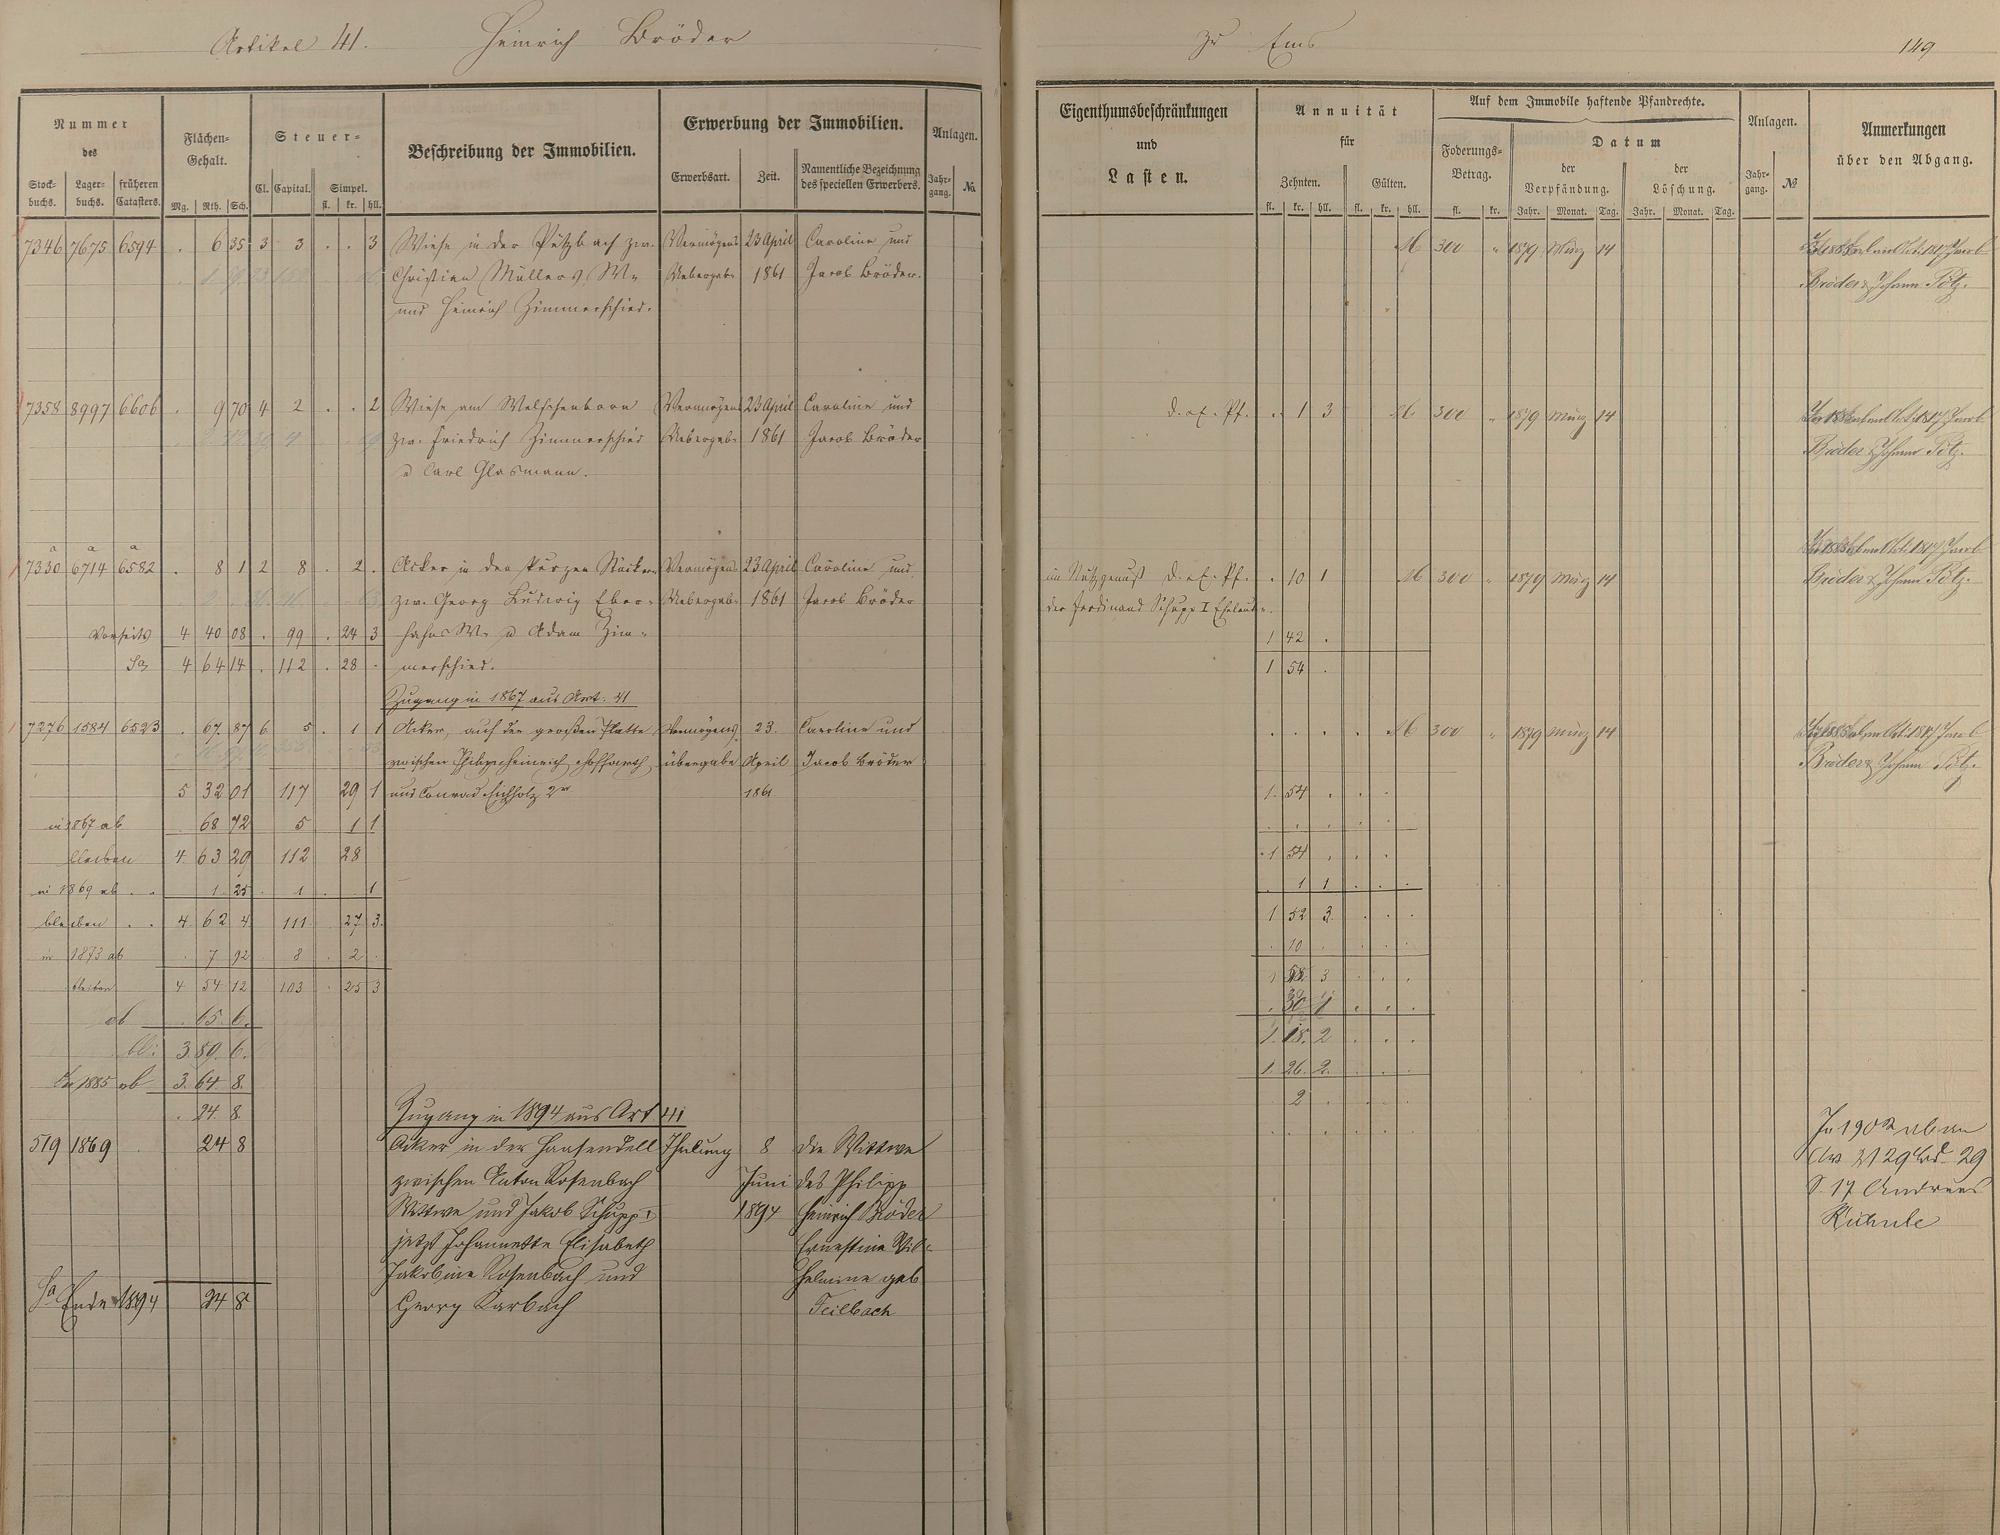 Artikel 41. Heinrich Bröder
zu Ems
149
Nummer des
Stock-buchs. Lager-buchs. früheren Catasters.
Flächen-Gehalt.
Mg. Rth. Sch.
Steuer-
Cl. Capital. Simpel.
fl. kr. hll.
Beschreibung der Immobilien.
Erwerbung der Immobilien.
Erwerbsart. Zeit. Namentliche Bezeichnung des speciellen Erwerbers.
Anlagen.
Jahr-gang. №
Eigenthumsbeschränkungen und Lasten.
Annuität für
Zehnten. Gülten.
fl. kr. hll. fl. kr. hll.
Auf dem Immobile haftende Pfandrechte.
Foderungs-Betrag.
fl. kr.
Datum
der Verpfändung. der Löschung.
Jahr. Monat. Tag. Jahr. Monat. Tag.
Anlagen.
Jahr-gang. №
Anmerkungen über den Abgang.
7346 7675 6594 . 6 35 3 3 . . 3 Wiese in der Pützbach zw. Vermögens 23 April Caroline und M 300 " 1879 März 14
Christian Müllers We Uebergabe 1861 Jacob Bröder. Bröder & Johann Pötz.
und Heinrich Zimmerschied.
7358 8997 6606 . 9 70 4 2 . . 2 Wiese am Welschenborn Vermögens 23 April Caroline und d. a. E. Pf. . 1 3 M 300 " 1879 März 14
zw. Friedrich Zimmerschied Uebergabe 1861 Jacob Bröder Bröder & Johann Pötz.
u Carl Glasmann.
a a a
7330 6714 6582 . 8 1 2 8 . 2 . Acker in den kurzen Stücken Vermögens 23 April Caroline und im Nutzgenuß d. a. E. Pf. . 10 1 M 300 " 1879 März 14 Bröder & Johann Pötz.
zw. Georg Ludwig Eber- Uebergabe 1861 Jacob Bröder der Ferdinand Schupp I Eheleute.
Vorseits 4 40 08 . 99 . 24 3 hahns We u Adam Zim- 1 42 .
Sa 4 64 14 . 112 . 28 . merschied. 1 54 .
Zugang in 1867 aus Art. 41
7276 1584 6523 . 67. 87 6 5 . 1 1 Acker, auf der großen Platte Vermögens 23. Caroline und . . . . M 300 " 1879 März 14
zwischen Philipp Heinrich Hoffarth übergabe April Jacob Bröder Bröder & Johann Pötz.
5 32 01 117 29 1 und Conrad Eichholz 2r 1861 1. 54 . . .
in 1867 ab 68 72 5 1 1
bleiben 4. 63 29 112 28 1 54 . . .
in 1869 ab . . 1. 25 . 1 . . 1 . 1 1 . . .
bleiben . . 4. 62 4 111. . 27 3. 1 52 3. . . .
in 1873 ab . 7 92 . 8 . 2 . . 10 . . . .
bleiben 4 54 12 103 . 25 3 3 . . .
ab . 65. 6.
bl: 3. 89. 6. 1. 18. 2 . . .
In 1885 ab 3. 64 8. 1. 26. 2. . . .
. 24. 8. Zugang in 1894 aus Art 41 2
519 1869 . 24 8 Acker in der Hasendell Theilung 8 die Wittwe
zwischen Anton Rosenbach Juni des Philipp
Wittwe und Jakob Schupp I 1894 Heinrich Bröder
jetzt Johannette Elisabeth Ernestine Wil-
Jakobine Rosenbach und helmine geb
Georg Karbach Feilbach
Sa Ende 1894 24 8
In 1902 ab an
Art 2129 Bd. 29
S. 17 Andreas